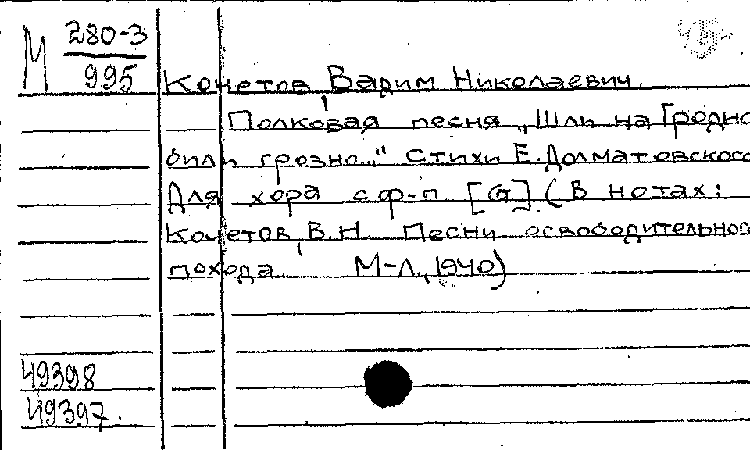 М 280-3
995
Кочетов, Вадим Николаевич
Полковая песня „Шли на Гродно
били грозно." Стихи Е. Долматовского
Для хора с ф-п [G] (В нотах:
Кочетов, В.Н. Песни освободительного
похода. М-Л, 1940)
49398
49397.